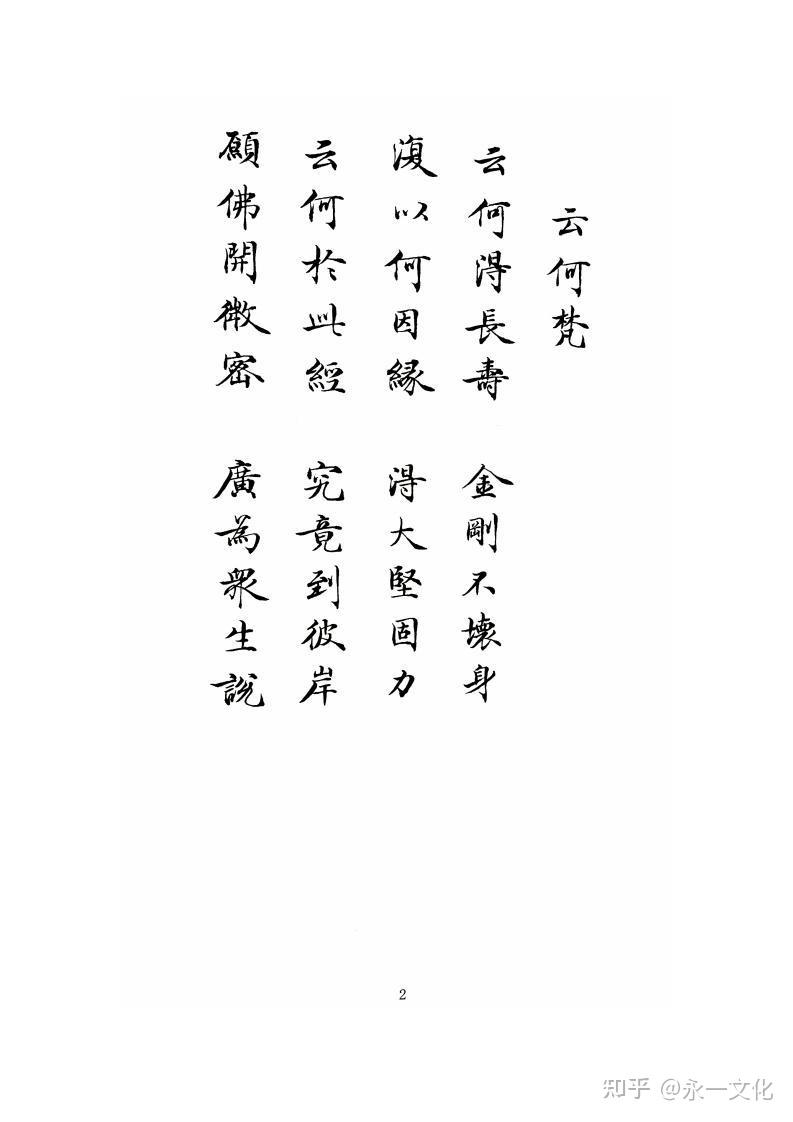 云何梵
云何得長壽 金剛不壞身
復以何因緣 得大堅固力
云何於此經 究竟到彼岸
願佛開微密 廣為眾生說
2
知乎 @永一文化